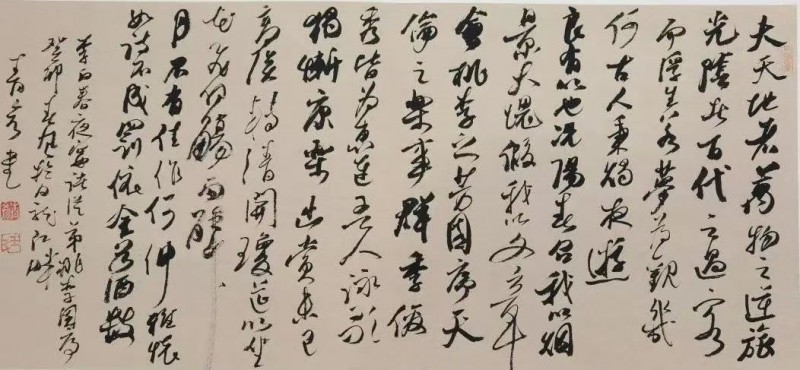 夫天地者萬物之逆旅
光陰者百代之過客
而浮生若夢為歡幾
何古人秉燭夜遊
良有以也況陽春召我以煙
景大塊假我以文章
會桃李之芳園序天
倫之樂事群季俊
秀皆為惠連吾人詠歌
獨慚康樂幽賞未已
高談轉清開瓊筵以坐
花飛羽觴而醉
月不有佳作何伸雅懷
如詩不成罰依金谷酒數
李白春夜宴諸從弟桃李園序
癸卯 於白龍江畔
書